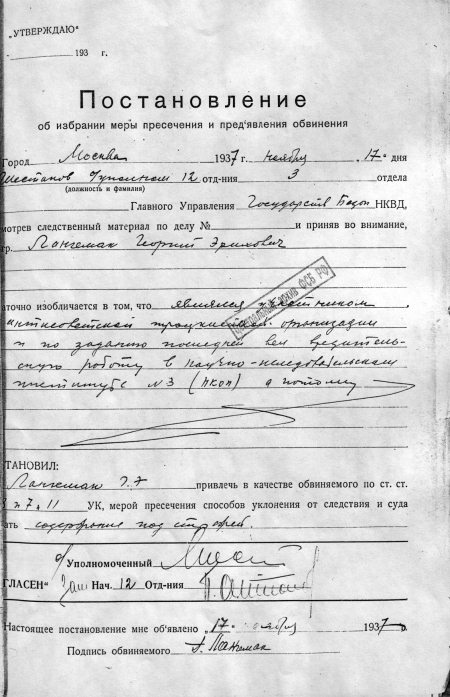 „УТВЕРЖДАЮ“
193 г.
Постановление
об избрании меры пресечения и пред'явления обвинения
Город Москва 1937 г. ноября 17 дня
12 отд-ния 3 отдела
(должность и фамилия)
Главного Управления Государств Безоп НКВД,
мотрев следственный материал по делу № и приняв во внимание,
гр. Лангемак Георгий Эрихович
ЦЕНТРАЛЬНЫЙ АРХИВ ФСБ РФ
аточно изобличается в том, что являлся участником
антисоветской троцкистской организации
и по заданию последней вел вредитель-
скую работу в научно-исследовательском
институте №3 (НКОП) а потому
ТАНОВИЛ:
Лангемак Г. Э привлечь в качестве обвиняемого по ст. ст.
7 и 11 УК, мерой пресечения способов уклонения от следствия и суда
ать содержание под стражей.
о/Уполномоченный
ГЛАСЕН“ Нач. 12 Отд-ния
Настоящее постановление мне об'явлено „17“ ноября 1937 г.
Подпись обвиняемого Г. Лангемак